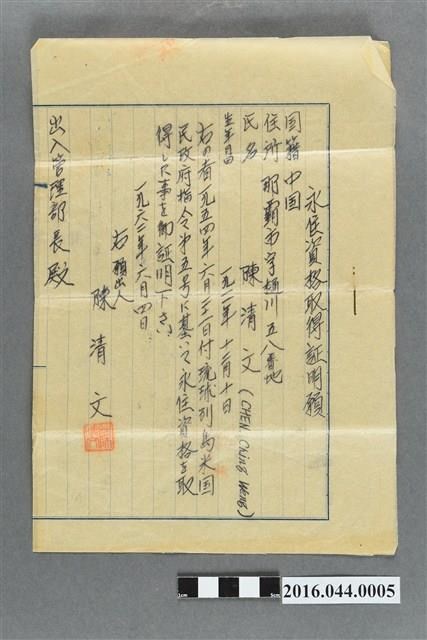 永住資格取得証明願
国籍 中国
住所 那霸市字樋川 五八番地
氏名 陳清文 (CHEN. Ching Weng)
生年月日 一九二一年 十二月十日
右の者一九五四年六月二一日付琉球列島米国
民政府指令第五号に基いて永住資格を取
得した事を御証明下さい
一九六二年六月四日
右願出人
陳清文
出入管理部長殿
2016.044.0005